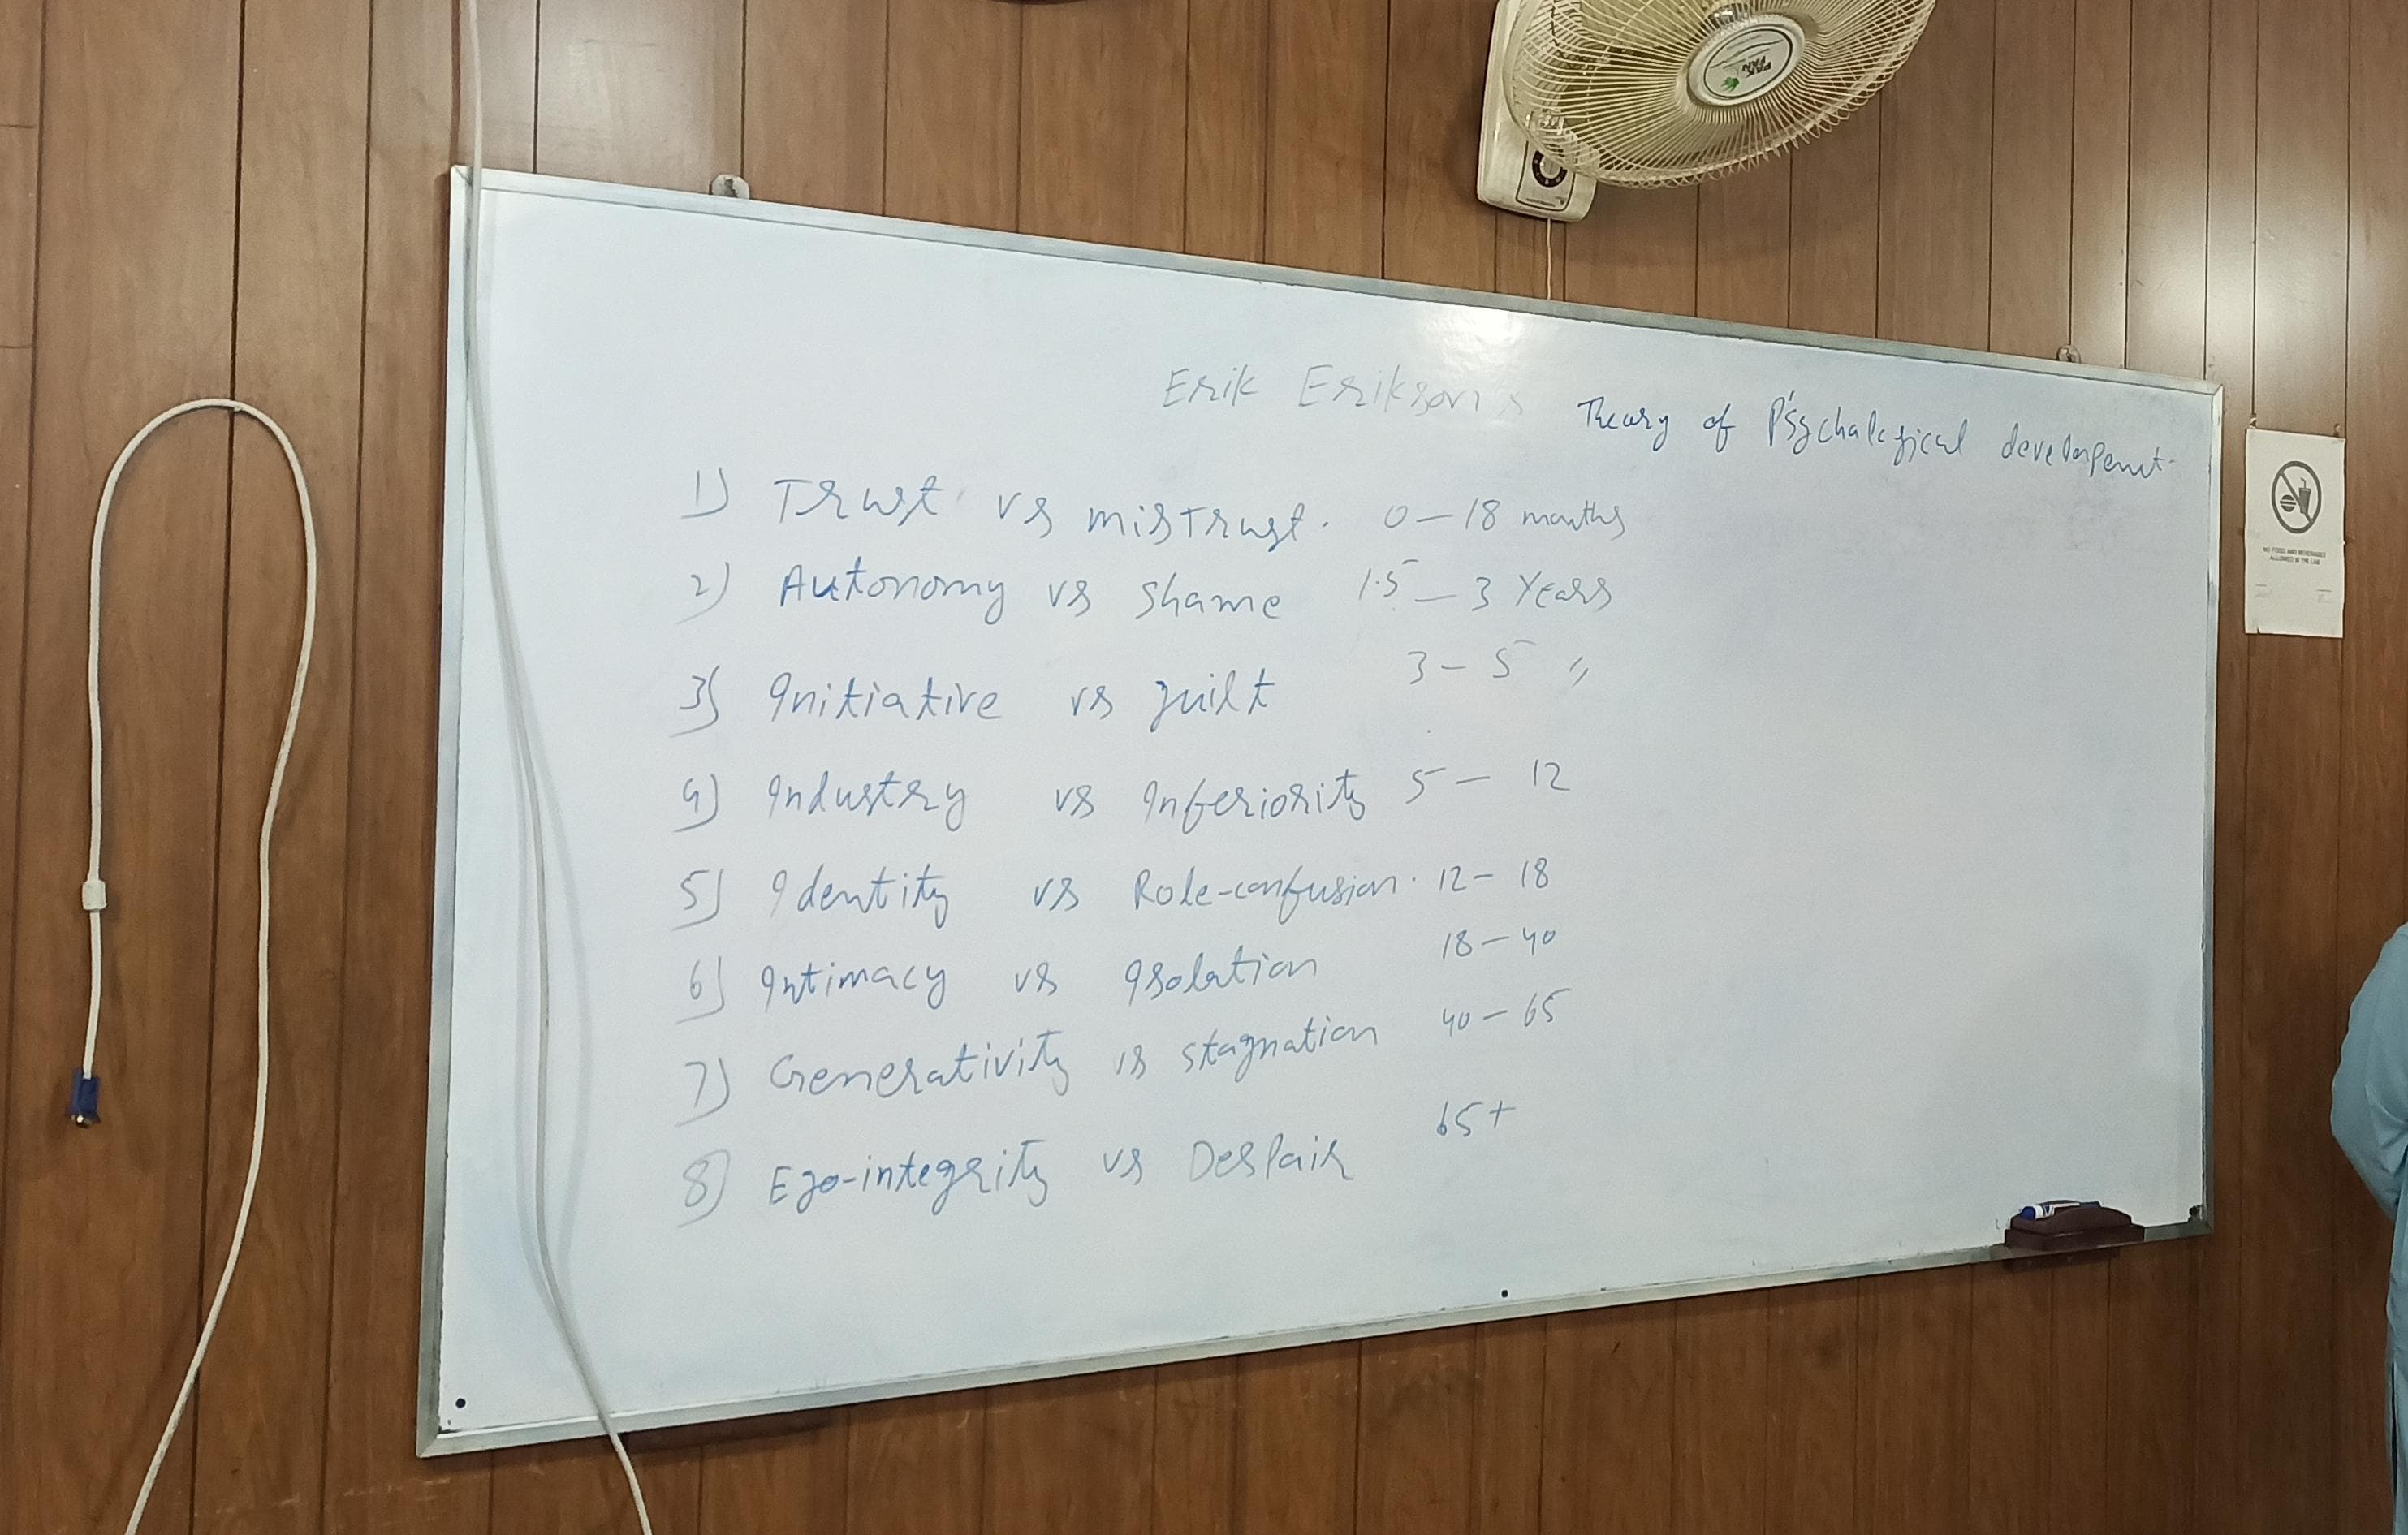 PAK
FAN
Erik Erikson's Theory of Psychological development
1) Trust vs misTrust. 0-18 months
2) Autonomy vs shame 1.5-3 Years
3) Initiative vs guilt 3-5 "
4) Industry vs Inferiority 5-12
5) Identity vs Role-confusion. 12-18
6) Intimacy vs Isolation 18-40
7) Generativity vs stagnation 40-65
8) Ego-integrity vs Despair 65+
NO FOOD AND BEVERAGES
ALLOWED IN THE LAB